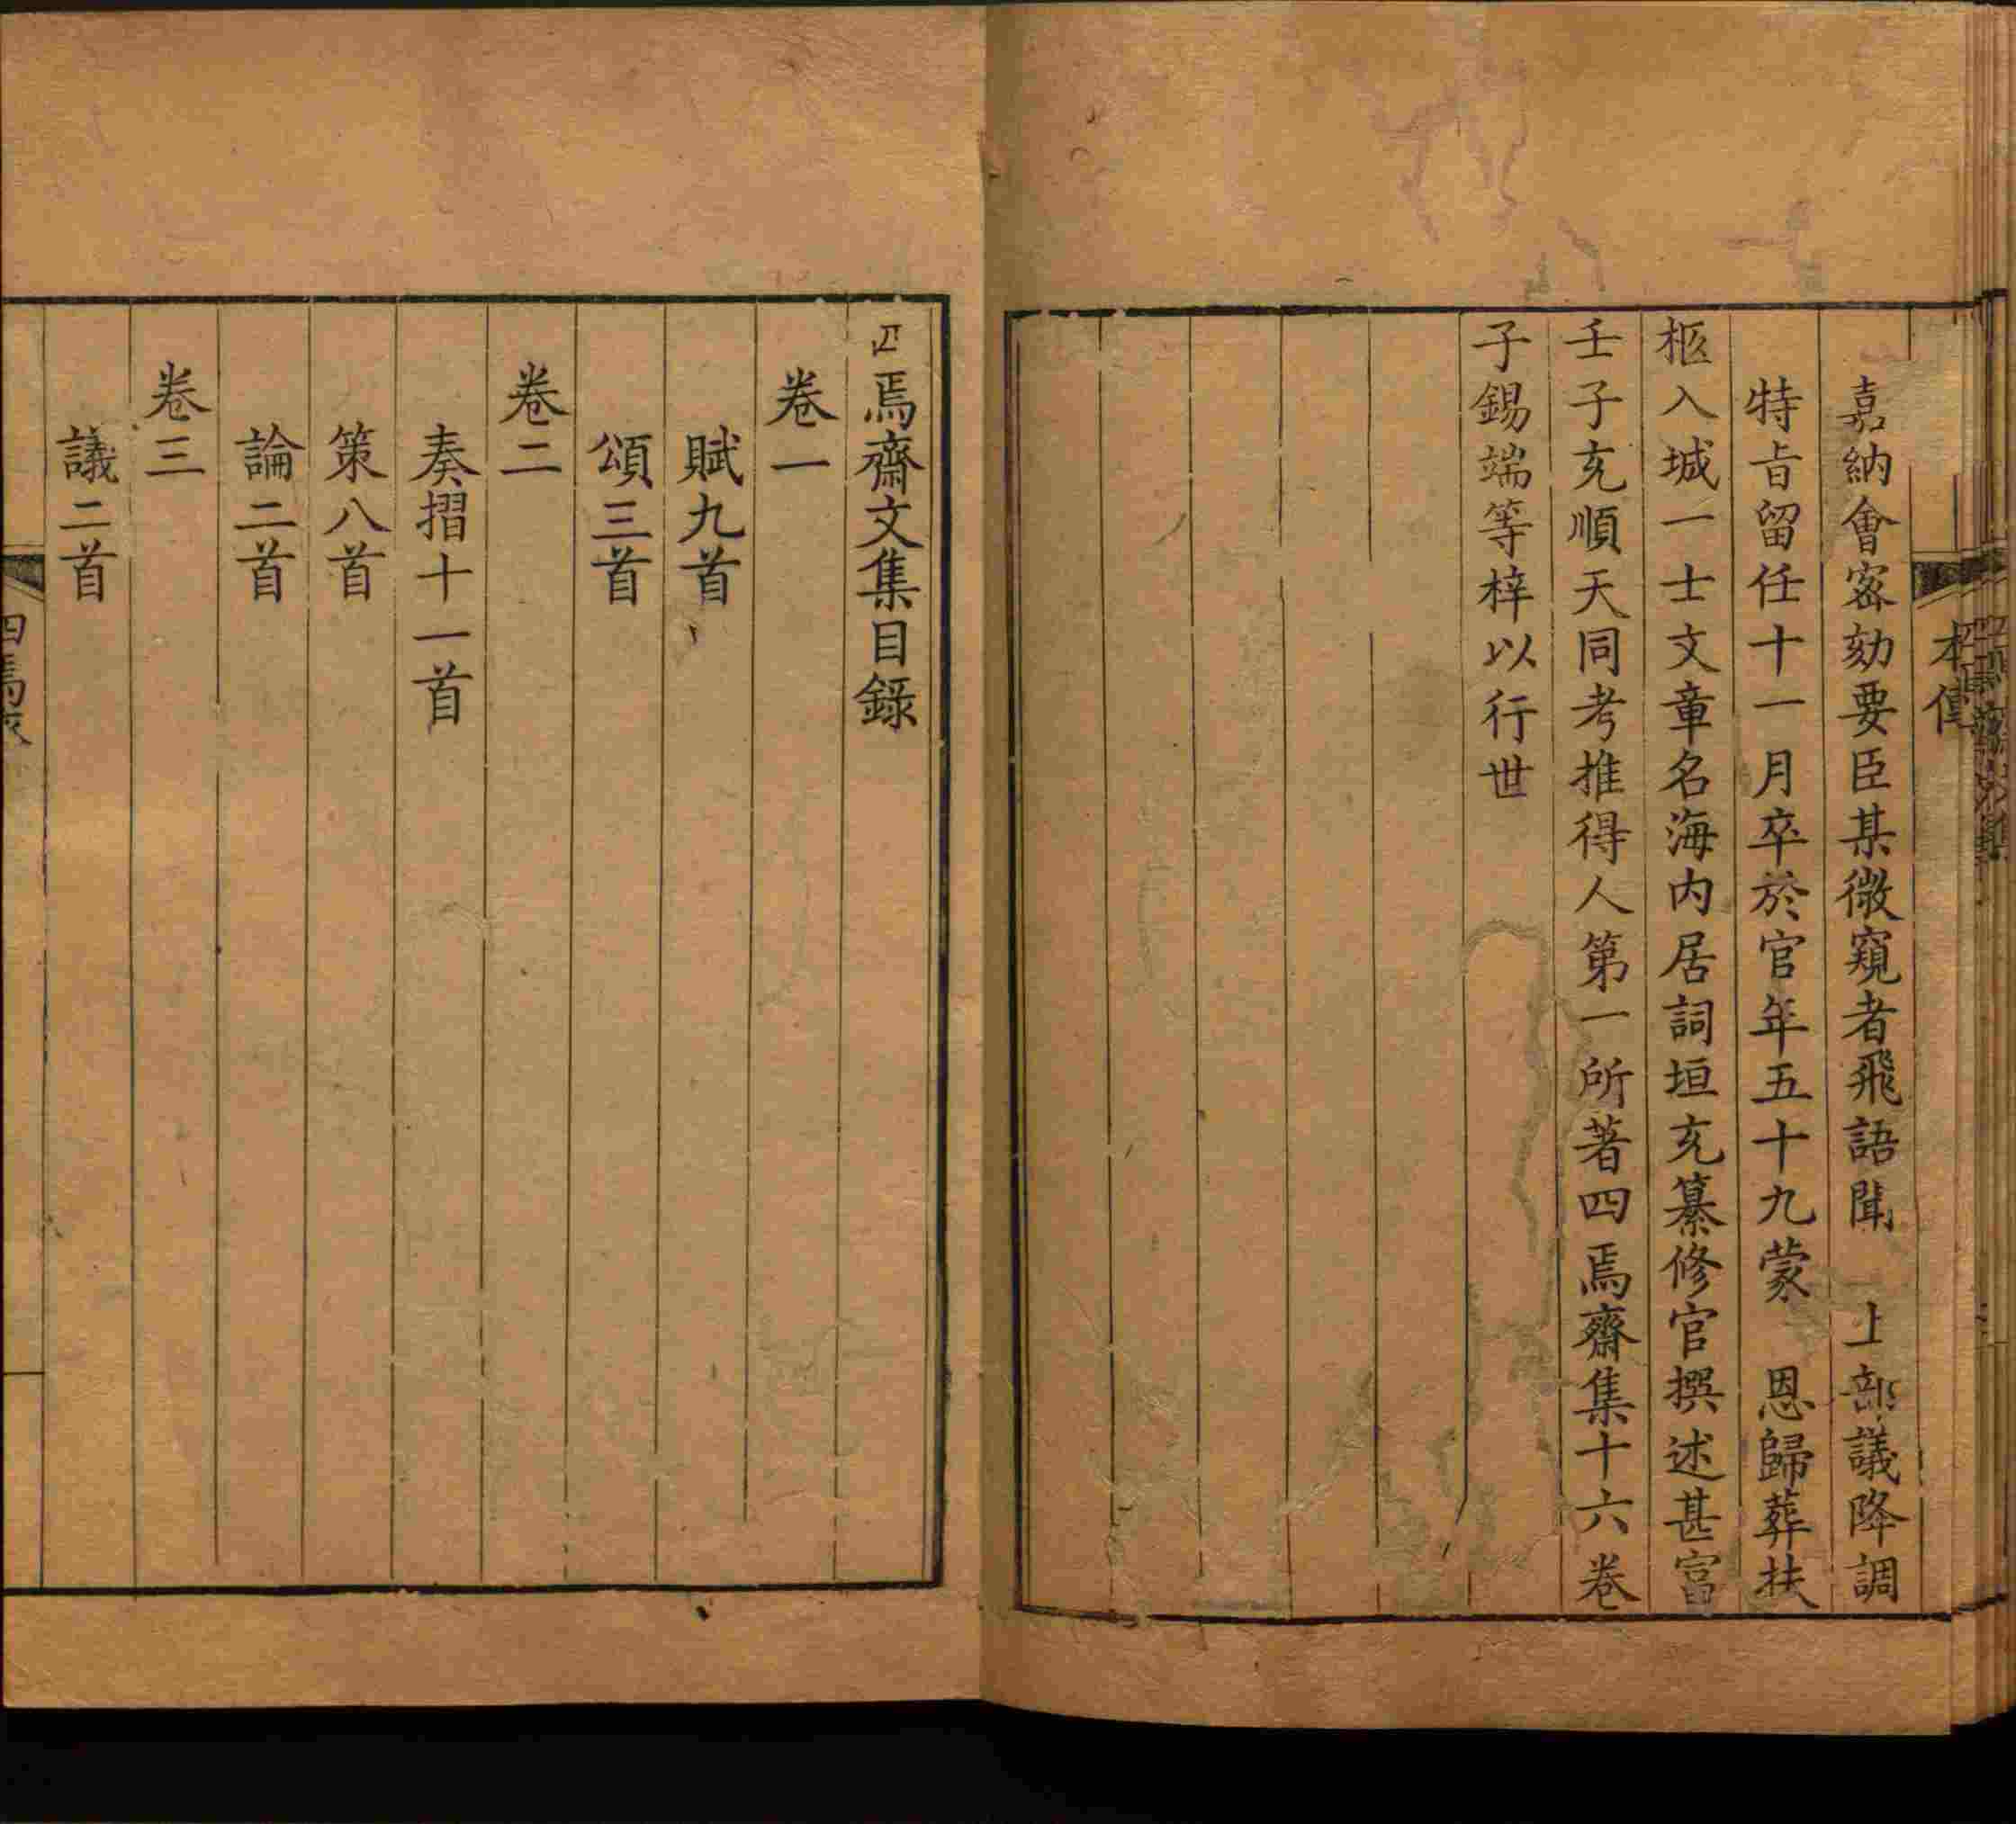 本傳
嘉納會密劾要臣某微窺者飛語聞　上部議降調
特旨留任十一月卒於官年五十九蒙　恩歸葬扶
柩入城一士文章名海内居詞垣充纂修官撰述甚富
壬子充順天同考推得人第一所著四焉齋集十六卷
子錫端等梓以行世
四焉齋文集目錄
卷一
賦九首
頌三首
卷二
奏摺十一首
策八首
論二首
卷三
議二首